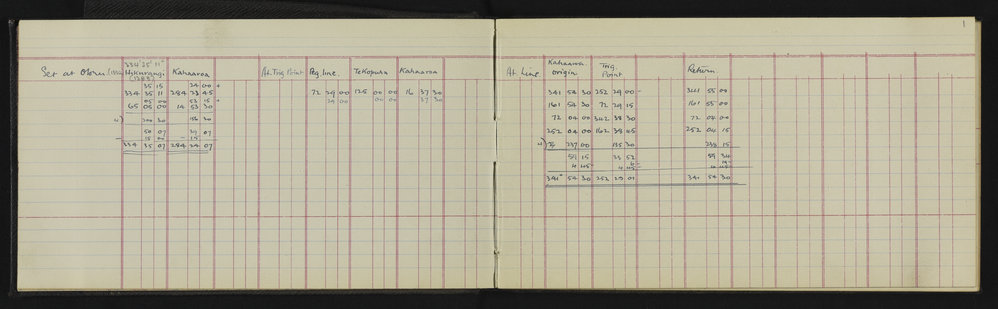 1
334° 25' 11"
Set at Otoru Hikurangi Kahaaroa At Trig Point Peg line. TeKopuru Kahaaroa
(1283)
35 15 24 00 +
334 35 11 284 23 45 72 29 00 125 00 00 16 37 30
05 00 53 15 +
29 00 00 00 37 30
65 05 00 14 53 30
4) 200 30 156 30
50 07 39 07
15 00 15
334 35 07 284 24 07
At Line Kahaaroa origin Trig. Point Return
341 54 30 252 29 00 341 55 00
161 54 30 72 29 15 161 55 00
72 04 00 342 38 30 72 04 00
252 04 00 162 38 45 252 04 15
4) 237 00 135 30 238 15
59 15 33 52 59 34
4 45
341° 54 30 252 29 07 341 54 30